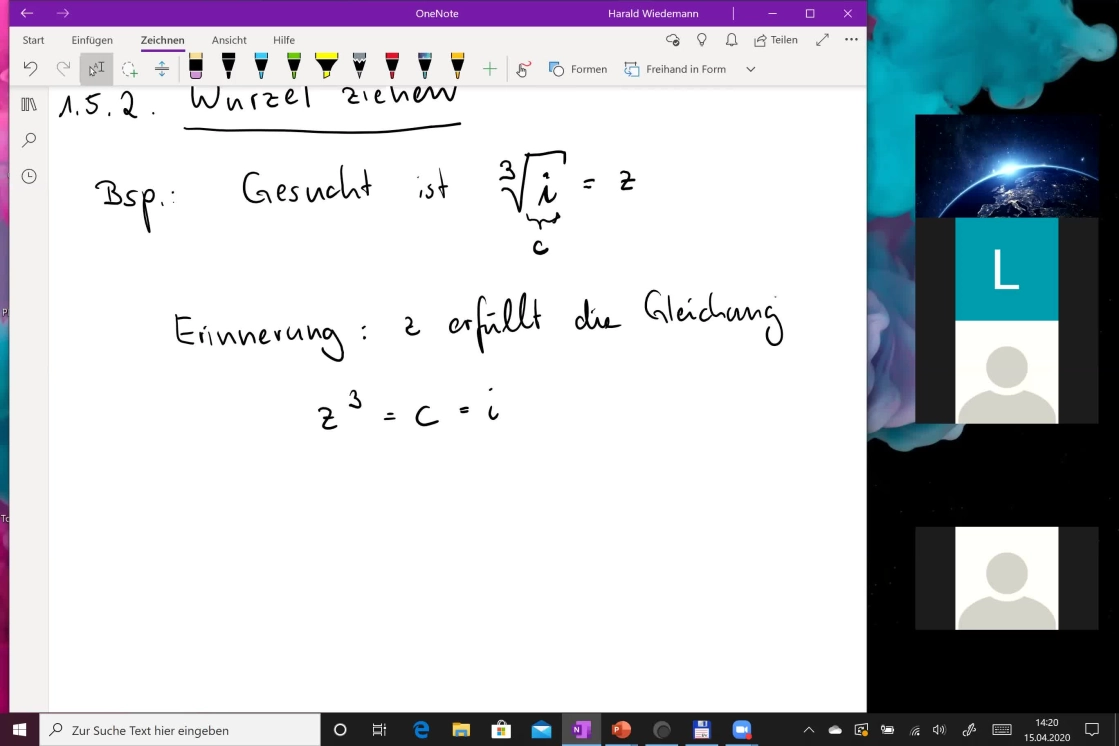 OneNote
Harald Wiedemann
Start Einfügen Zeichnen Ansicht Hilfe Teilen
Formen Freihand in Form
1.5.2. Wurzel ziehen
Bsp.: Gesucht ist ³√i = z
c
L
Erinnerung: z erfüllt die Gleichung
z³ = c = i
Zur Suche Text hier eingeben
14:20
15.04.2020